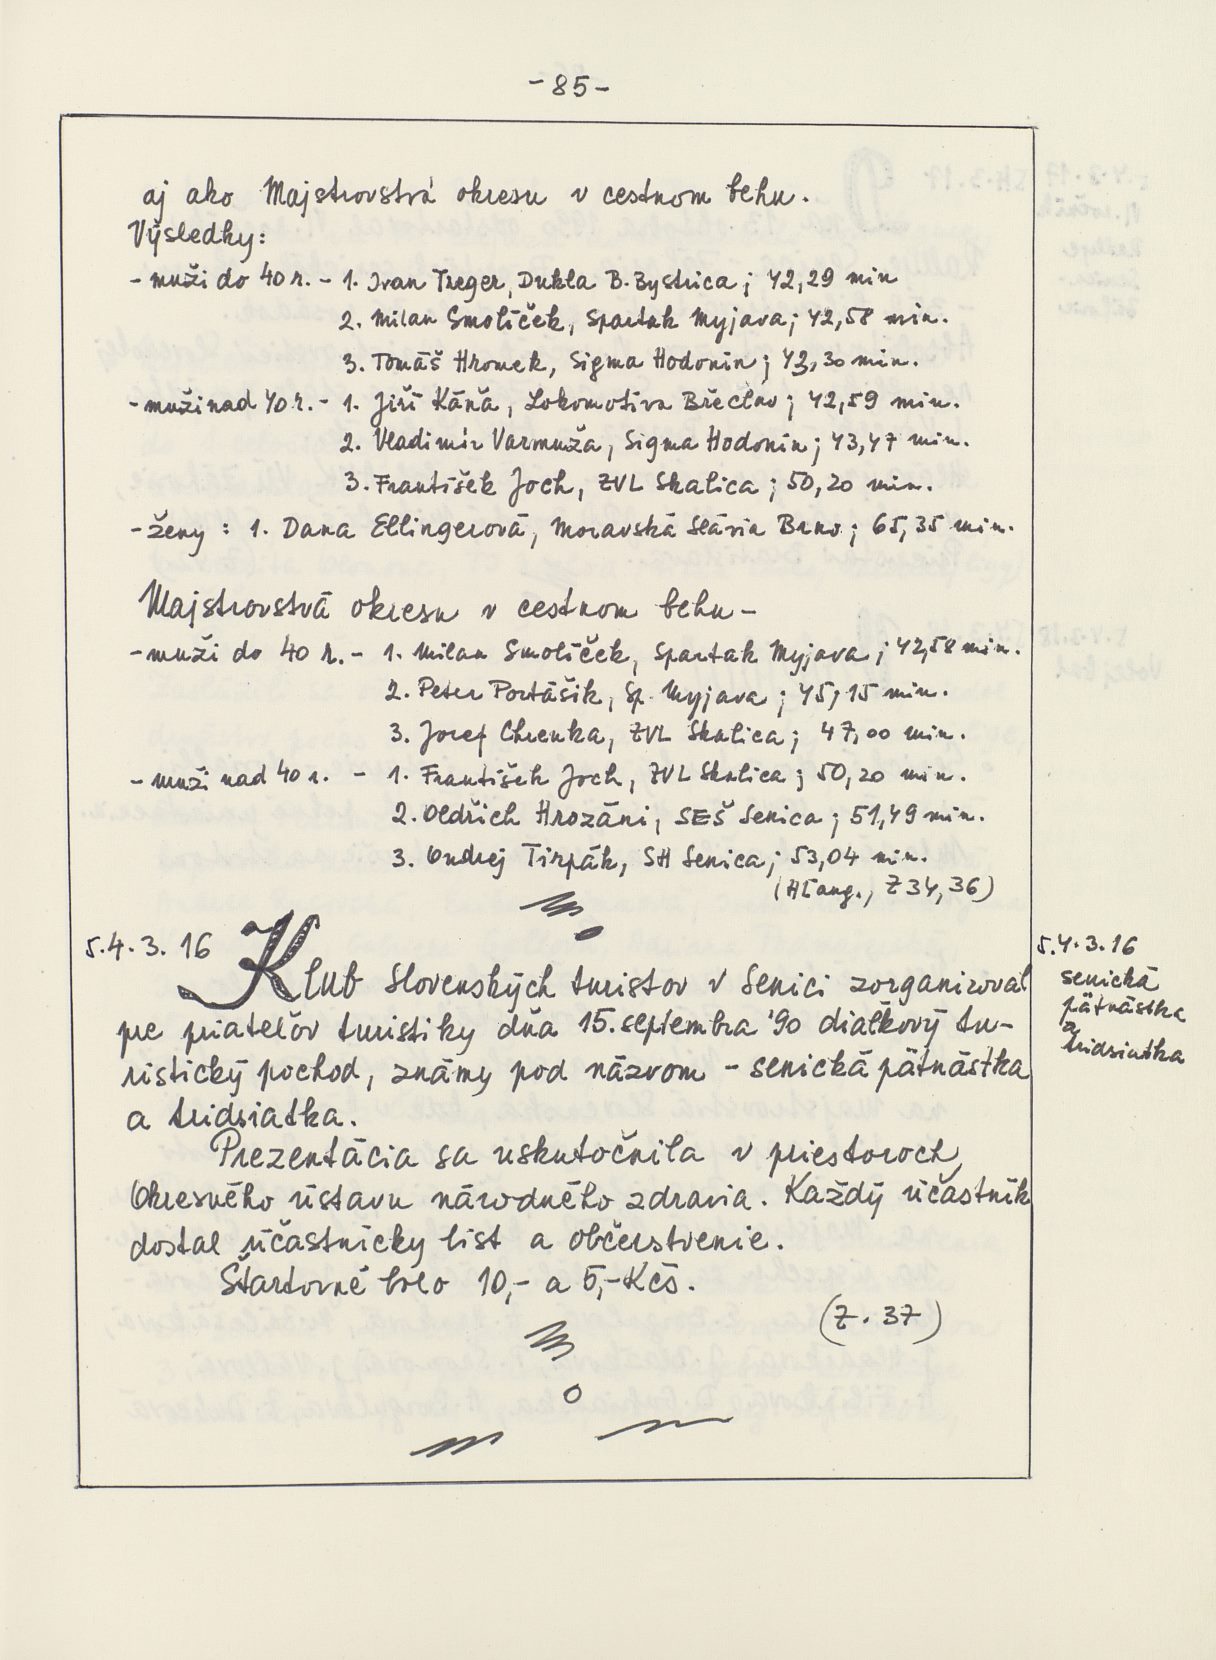 -85-
aj ako Majstrovstvá okresu v cestnom behu.
Výsledky:
- muži do 40 r. - 1. Ivan Treger, Dukla B. Bystrica; 42,29 min
2. Milan Smolíček, Spartak Myjava; 42,58 min.
3. Tomáš Hromek, Sigma Hodonín; 43,30 min.
- muži nad 40 r. - 1. Jiří Káňa, Lokomotíva Břeclav; 42,59 min.
2. Vladimír Varmuža, Sigma Hodonín; 43,47 min.
3. František Joch, ZVL Skalica; 50,20 min.
- ženy: 1. Dana Ellingerová, Moravská Slávia Brno; 65,35 min.
Majstrovstvá okresu v cestnom behu -
- muži do 40 r. - 1. Milan Smolíček, Spartak Myjava; 42,58 min.
2. Peter Portášik, Sp. Myjava; 45,15 min.
3. Jozef Chrenka, ZVL Skalica; 47,00 min.
- muži nad 40 r. - 1. František Joch, ZVL Skalica; 50,20 min.
2. Oldřich Hrozáni, SEŠ Senica; 51,49 min.
3. Ondrej Tirpák, SH Senica; 53,04 min.
Z 34, 36)
5.4.3.16 Klub slovenských turistov v Senici zorganizoval
pre priateľov turistiky dňa 15. septembra '90 diaľkový tu-
ristický pochod, známy pod názvom - senická pätnástka
a tridsiatka.
Prezentácia sa uskutočnila v priestoroch
Okresného ústavu národného zdravia. Každý účastník
dostal účastnícky list a občerstvenie.
Štartovné bolo 10,- a 5,- Kčs.
(Z. 37)
5.4.3.16
senická
pätnástka
a
tridsiatka